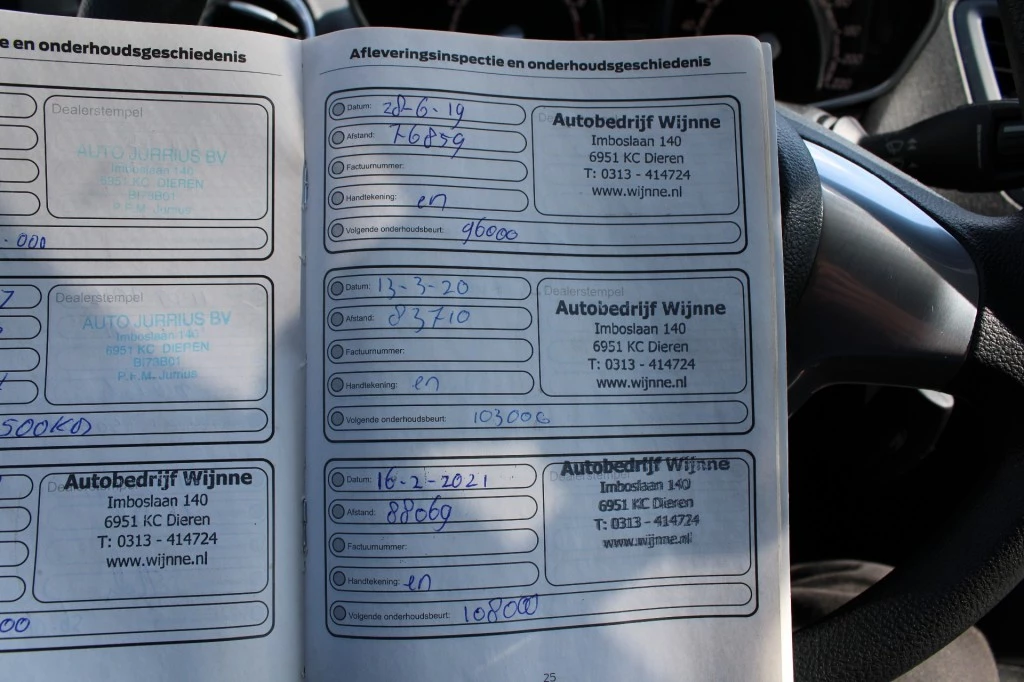 e en onderhoudsgeschiedenis
Dealerstempel
AUTO JURRIUS BV
Imboslaan 140
6951 KC DIEREN
BI73B01
P.F.M. Jurrius
.000
7
Dealerstempel
AUTO JURRIUS BV
Imboslaan 140
6951 KC DIEREN
BI73B01
P.F.M. Jurrius
500KD
Autobedrijf Wijnne
Imboslaan 140
6951 KC Dieren
T: 0313 - 414724
www.wijnne.nl
00
Afleveringsinspectie en onderhoudsgeschiedenis
Datum: 28-6-19
Afstand: 76859
Factuurnummer:
Handtekening: en
Volgende onderhoudsbeurt: 96000
Autobedrijf Wijnne
Imboslaan 140
6951 KC Dieren
T: 0313 - 414724
www.wijnne.nl
Datum: 13-3-20
Afstand: 83710
Factuurnummer:
Handtekening: en
Volgende onderhoudsbeurt: 103000
Dealerstempel
Autobedrijf Wijnne
Imboslaan 140
6951 KC Dieren
T: 0313 - 414724
www.wijnne.nl
Datum: 16-2-2021
Afstand: 88069
Factuurnummer:
Handtekening: en
Volgende onderhoudsbeurt: 108000
Autobedrijf Wijnne
Imboslaan 140
6951 KC Dieren
T: 0313 - 414724
www.wijnne.nl
25